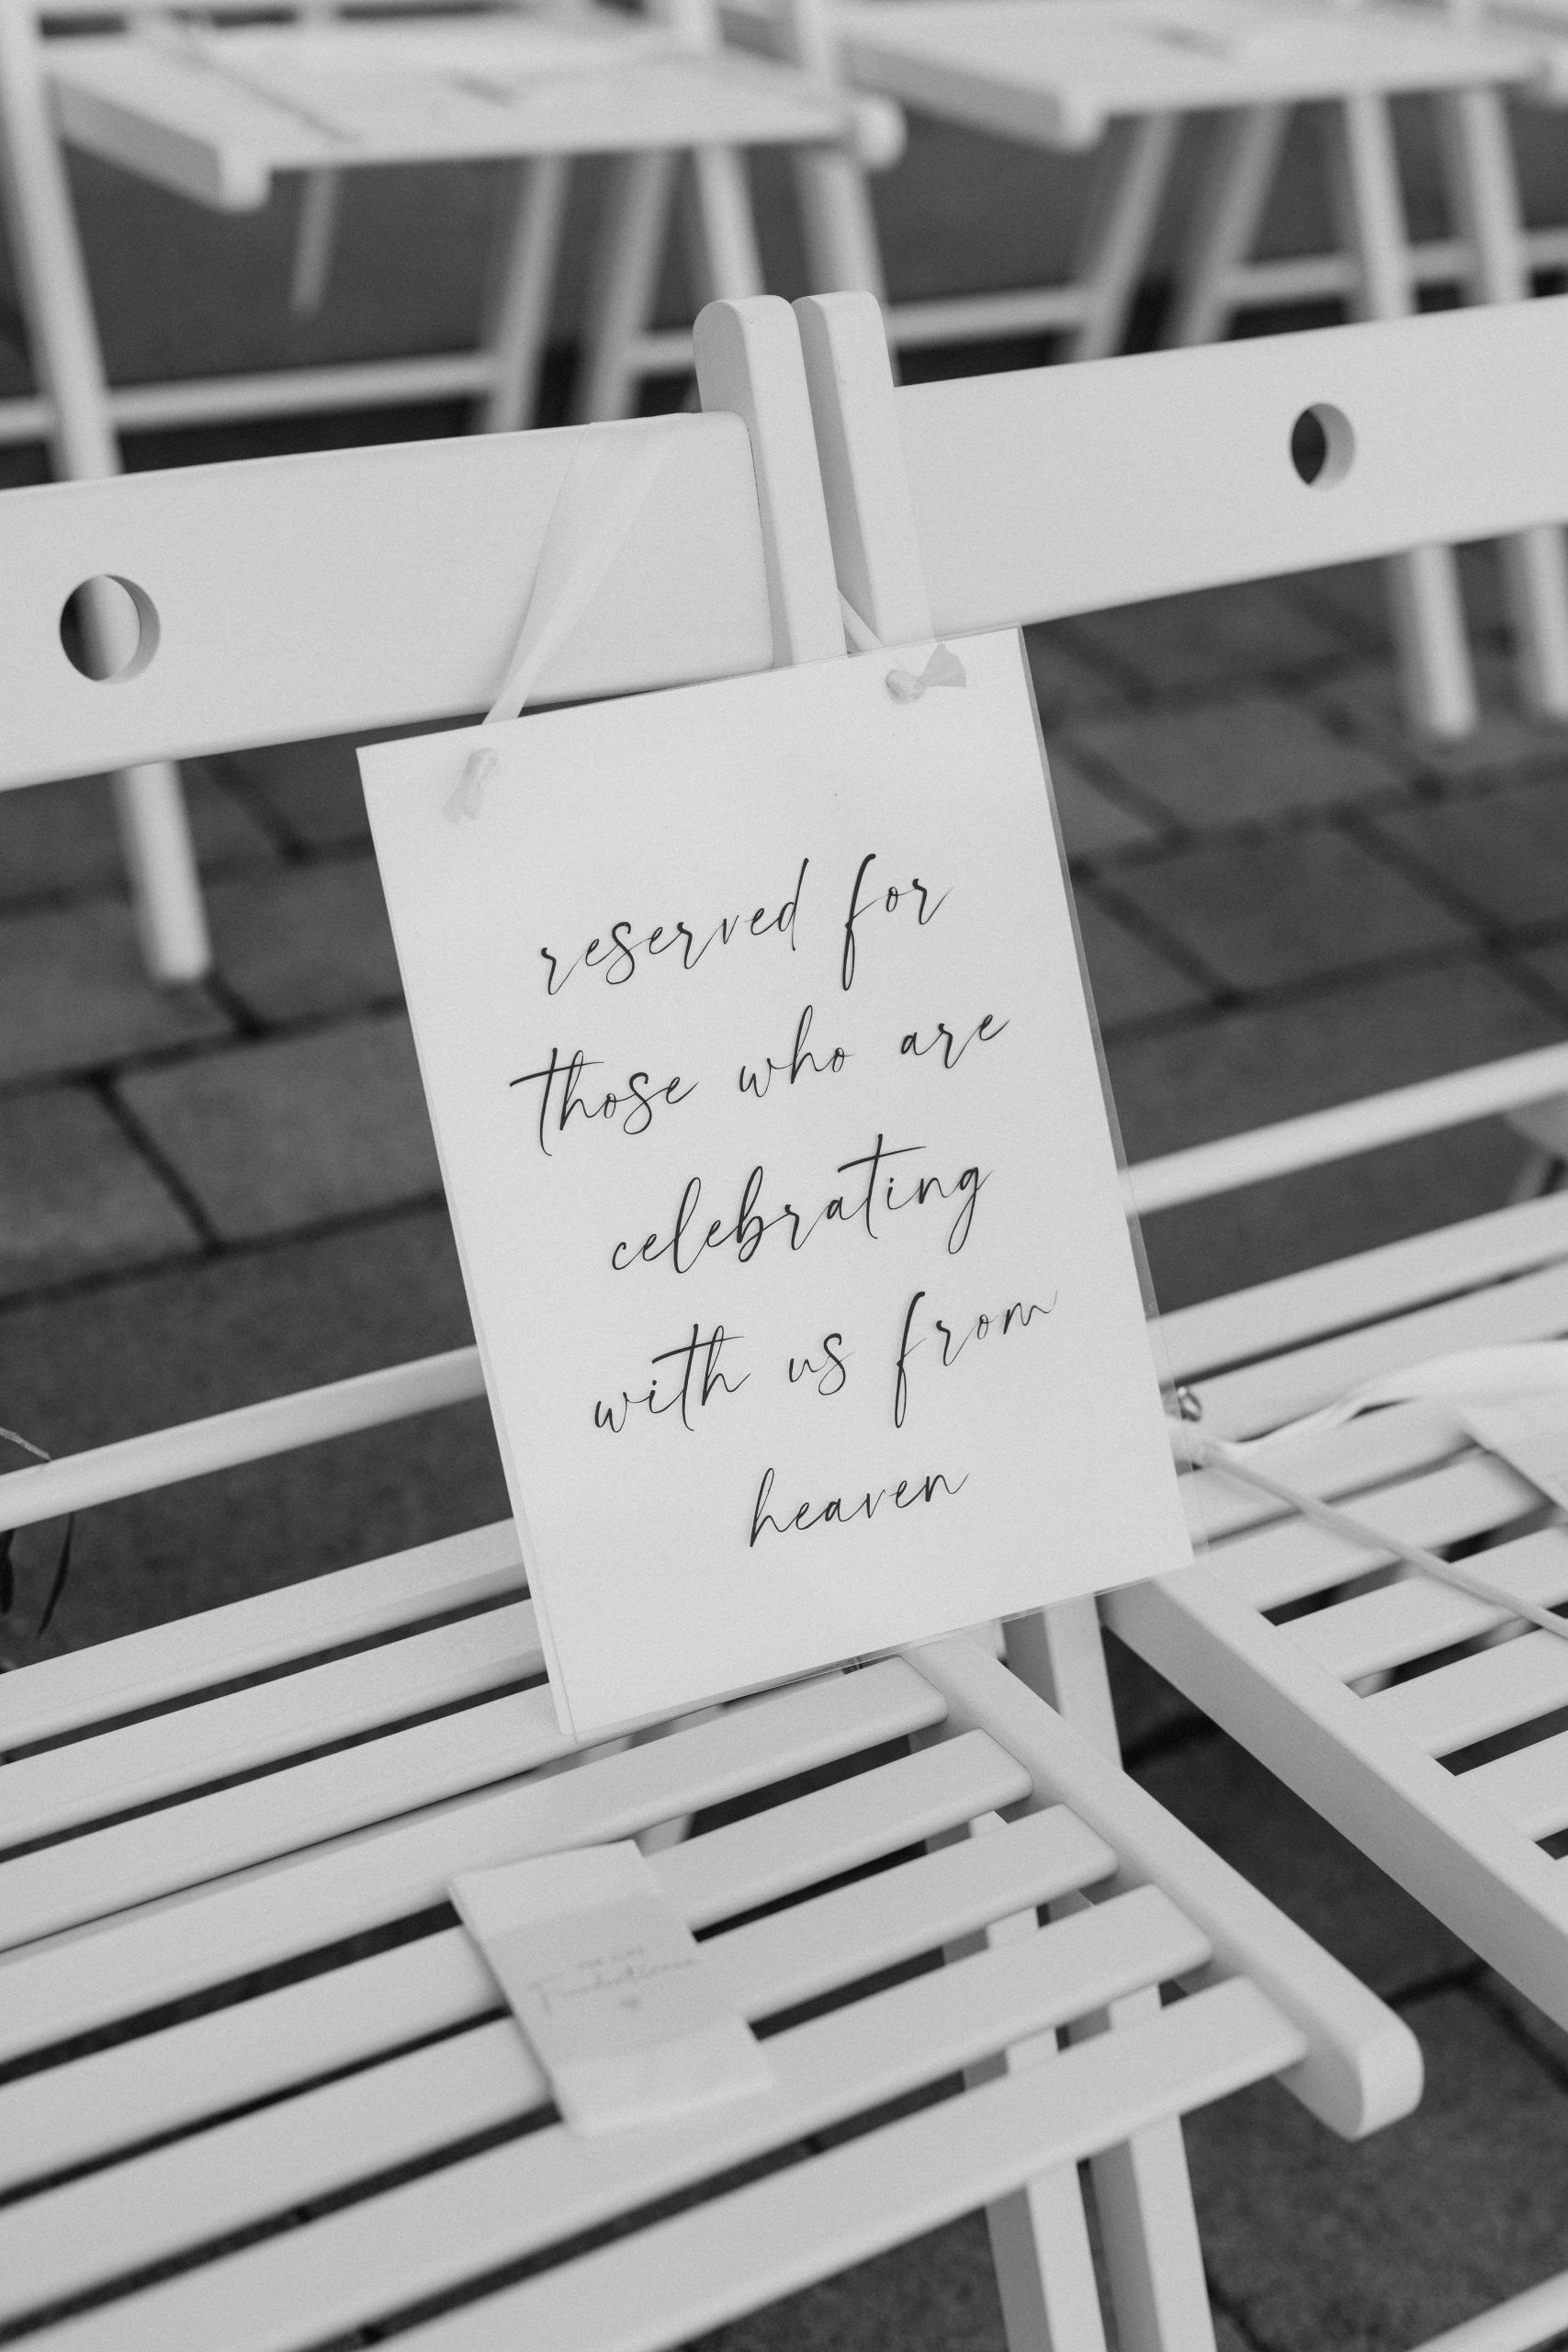 reserved for
those who are
celebrating
with us from
heaven